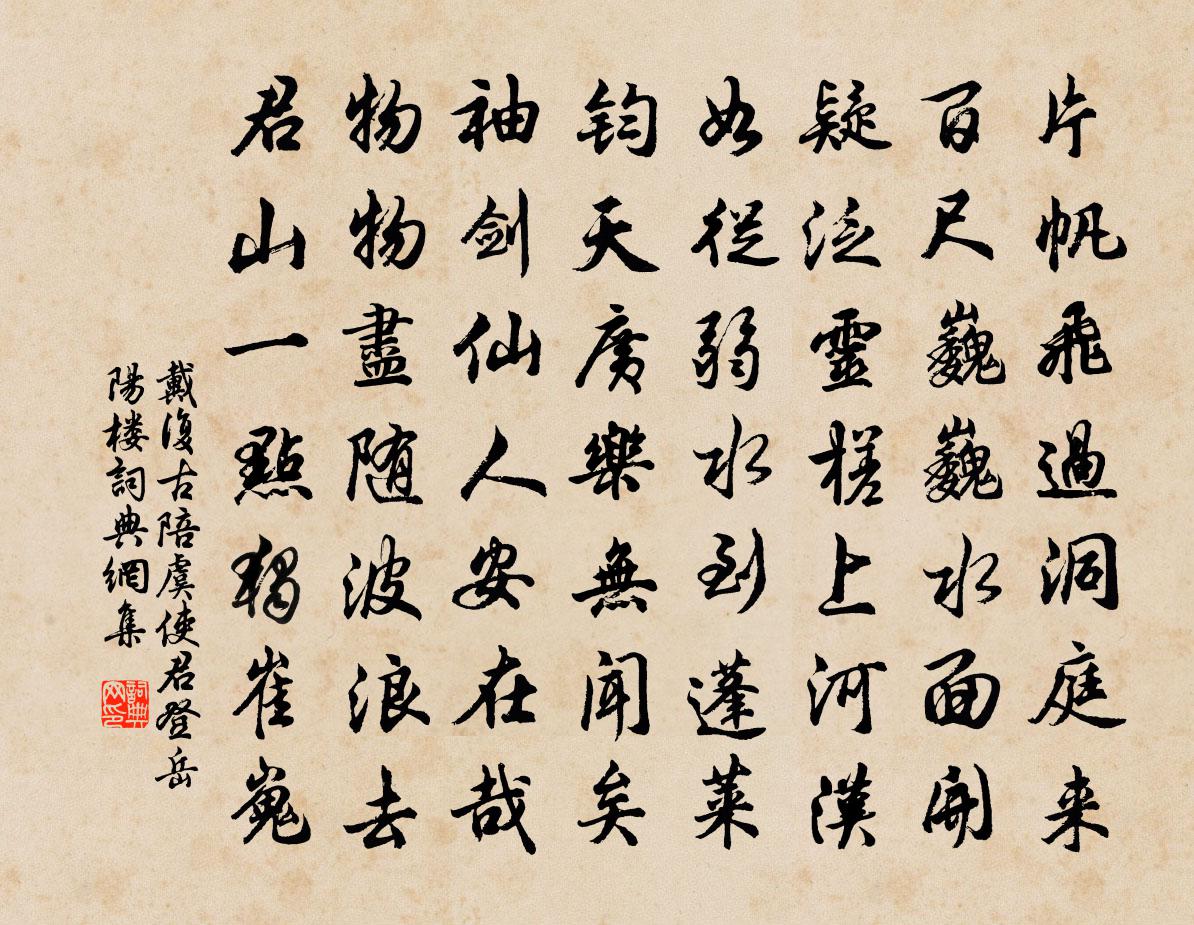 片帆飛過洞庭来
百尺巍巍水面開
疑泛靈槎上河漢
如從弱水到蓬萊
鈞天廣樂無闻矣
袖劍仙人安在哉
物物盡随波浪去
君山一點獨崔嵬
戴復古陪虞使君登岳
陽楼詞典網集
詞典
网印